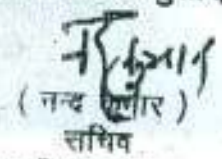 ( नन्द कुमार )
सचिव